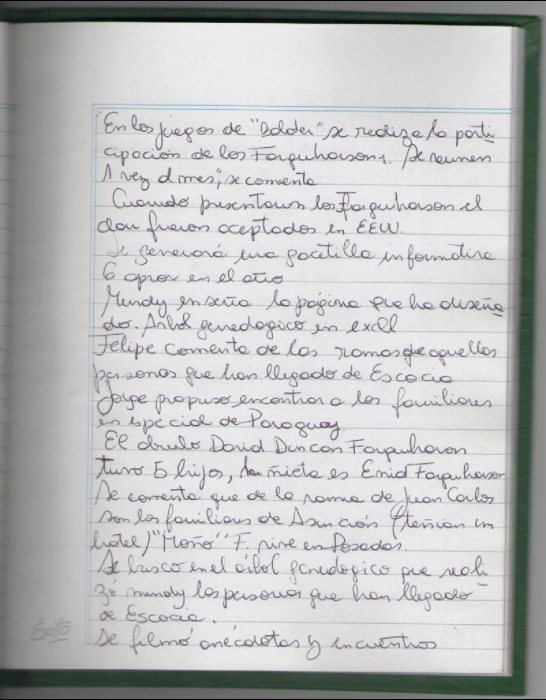 En los juegos de "Dolder" se realiza la parti-
cipación de los Farquharson. Se reunen
1 vez al mes", se comenta
Cuando presentaron los Farquharson el
clan fueron aceptados en EEUU.
Se generará una gacetilla informativa
6 aprox en el año
Mundy enseña la página que ha diseña-
do. Arbol genealogico en excll
Felipe comenta de las ramas de aquellas
personas que han llegado de Escocia
Jorge propuso encontrar a los familiares
en especial de Paraguay
El abuelo David Duncan Farquharson
tuvo 5 hijos, su nieta es Enid Farquharson
Se comenta que de la rama de Juan Carlos
son los familiares de Asunción (tenian un
hotel) "Moño" F. vive en Posadas.
Se busco en el árbol genealogico que reali-
zó mundy las personas que han llegado
de Escocia.
Se filmó anécdotas y encuentros